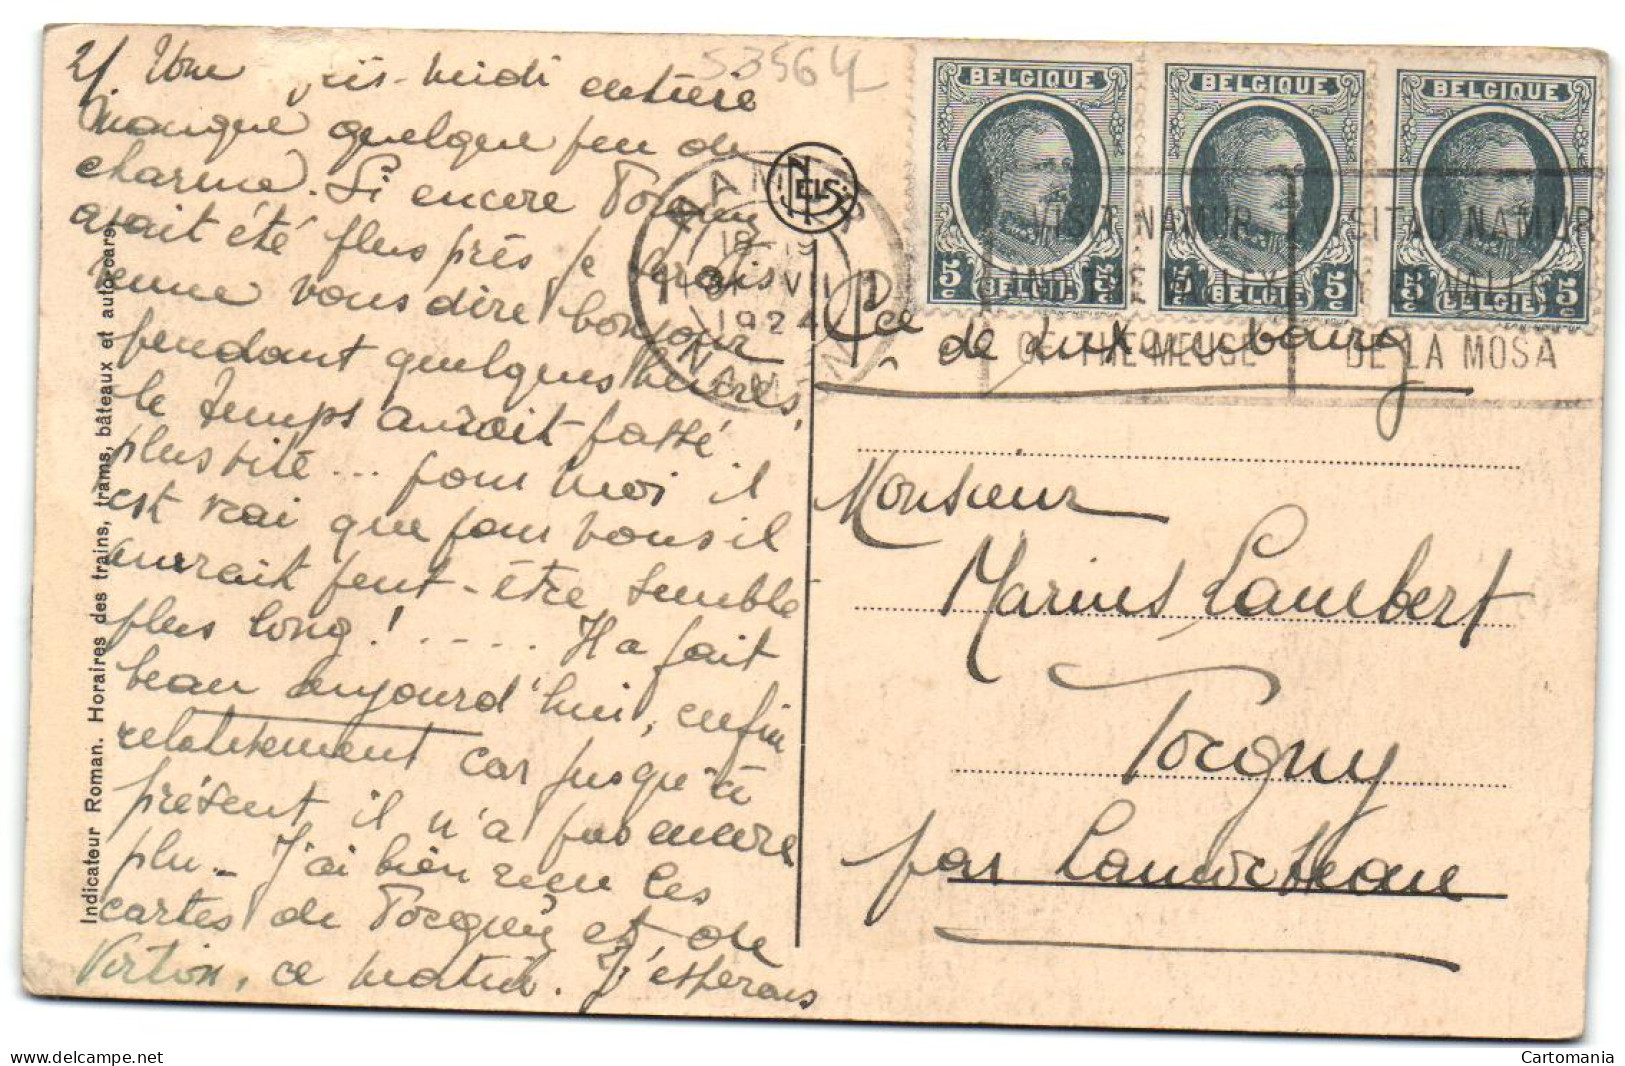 2/ Une après-midi entière
manque quelque peu de
charme. Si encore Torgny
avait été plus près je serais
venue vous dire bonjour
pendant quelques heures,
le temps aurait passé
plus vite... pour moi il
est vrai que pour vous il
aurait peut-être semblé
plus long! .... Il a fait
beau aujourd'hui, enfin
relativement car jusqu'à
présent il n'a pas encore
plu - J'ai bien reçu les
cartes de Torgny et de
Virton, ce matin. J'espérais
Indicateur Roman. Horaires des trains, trams, bâteaux et autorcars.
53564
NELS
NAMUR
18-19
VII
1924
NAMEN
BELGIQUE
BELGIQUE
BELGIQUE
5c BELGIË 5c
5c BELGIË 5c
5c BELGIË 5c
VISIT NAMUR
AND THE VALLEY
OF THE MEUSE
VISITAD NAMUR
VALLE
DE LA MOSA
Pce
de Luxembourg
Monsieur
Marius Lambert
Torgny
par Lamorteau
Cartomania
delcampe.net